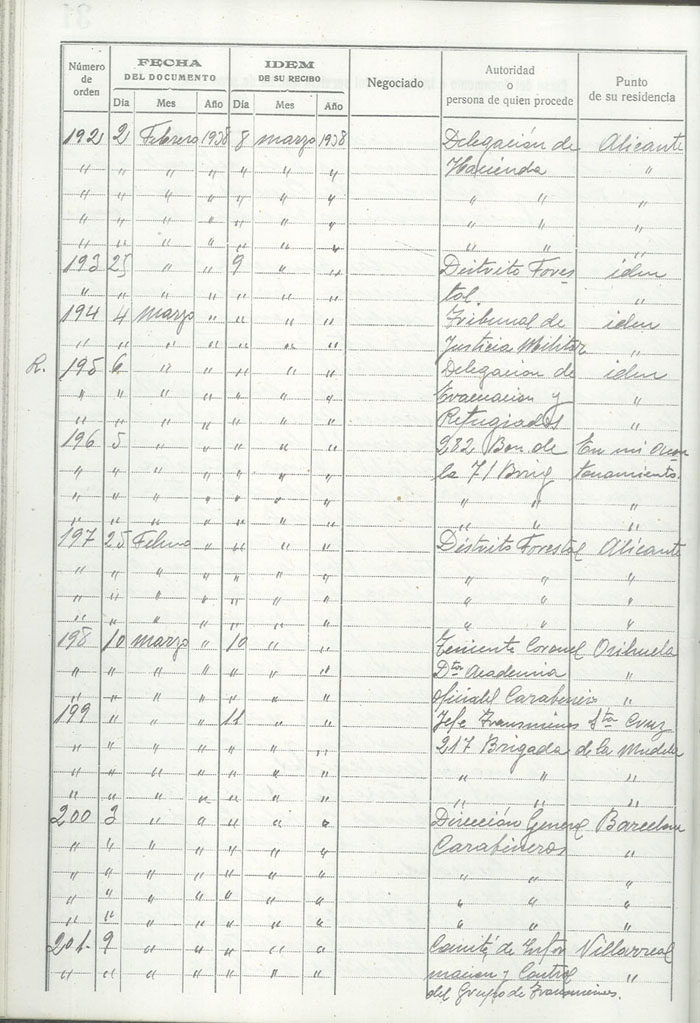 Número de orden | FECHA DEL DOCUMENTO | IDEM DE SU RECIBO | Negociado | Autoridad o persona de quien procede | Punto de su residencia
Dia | Mes | Año | Dia | Mes | Año
192 2 Febrero 1938 8 marzo 1938 Delegación de Alicante
" " " " " " " Hacienda "
" " " " " " " " " "
" " " " " " " " " "
" " " " " " " " " "
193 25 " " 9 " " Distrito Fores iden
" " " " " " " tal. "
194 4 marzo " " " " Tribunal de iden
" " " " " " " Justicia Militar "
R. 195 6 " " " " " Delegacion de iden
" " " " " " " Evacuacion y "
" " " " " " " Refugiados "
196 5 " " " " " 282 Bon. de En mi acan
" " " " " " " la 71 Brig tonamiento.
" " " " " " " " " "
" " " " " " " " " "
197 25 Febrero " " " " Distrito Forestal Alicante
" " " " " " " " " "
" " " " " " " " " "
" " " " " " " " " "
198 10 marzo " 10 " " Teniente Coronel Orihuela
" " " " " " " Dtor Academia "
" " " " " " " oficiales Carabineros "
199 " " " 11 " " Jefe Transmines Sta Cruz
" " " " " " " 217 Brigada de la Mudela
" " " " " " " " " "
" " " " " " " " " "
200 3 " " " " " Dirección General Barcelona
" " " " " " " Carabineros "
" " " " " " " " " "
" " " " " " " " " "
" " " " " " " " " "
201 9 " " " " " Comité de Infor Villarreal
" " " " " " " macion y Control "
del Grupo de Transmines.